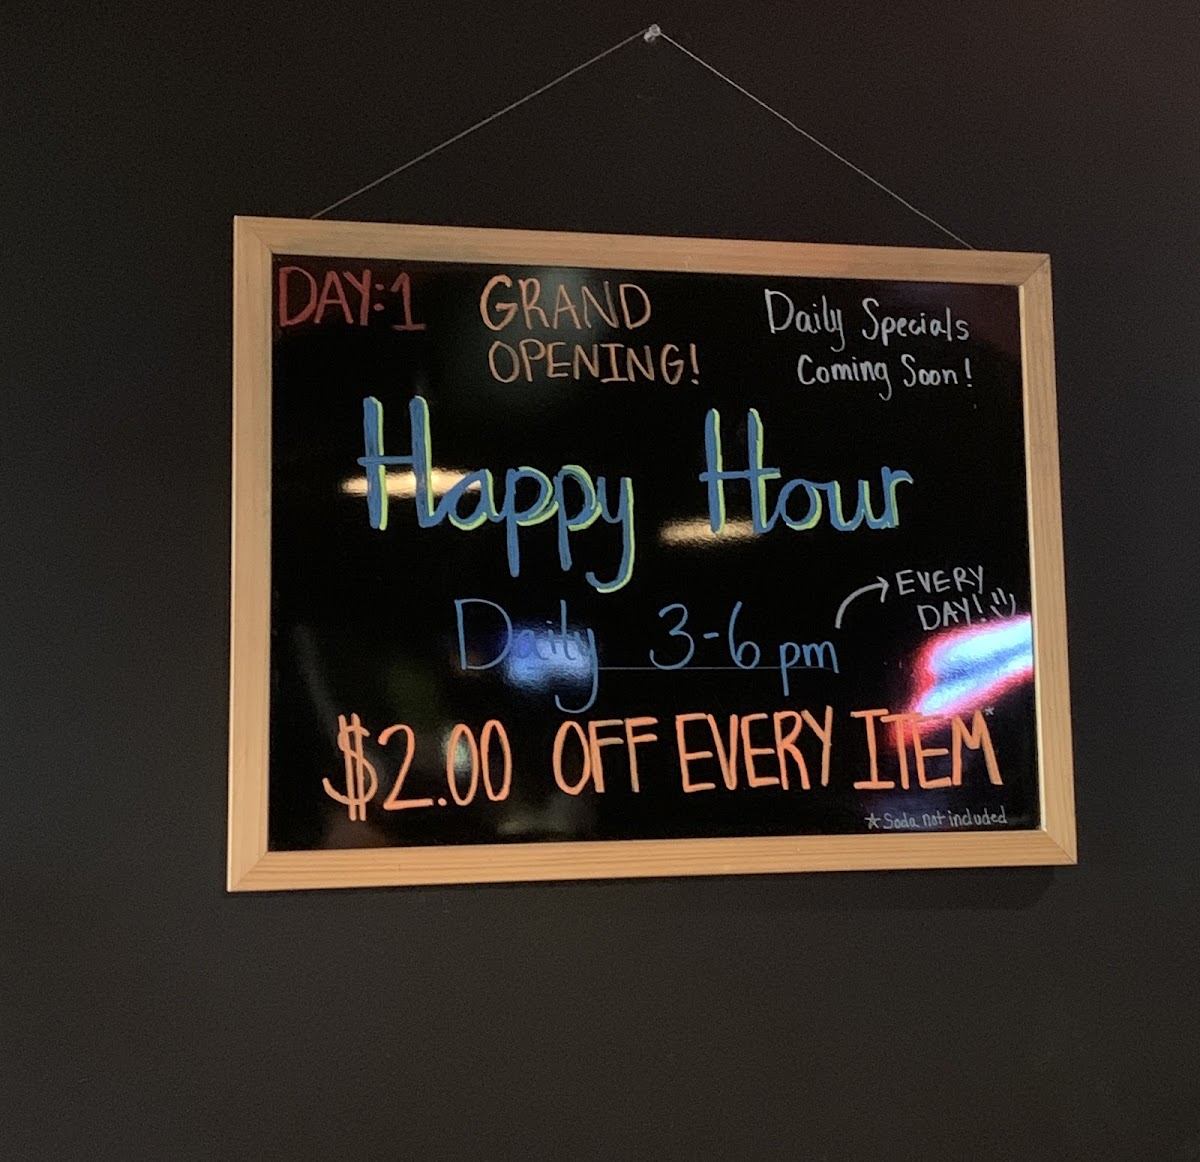 DAY:1
GRAND
OPENING!
Daily Specials
Coming Soon!
Happy Hour
Daily 3-6 pm
EVERY
DAY!
$2.00 OFF EVERY ITEM*
*Soda not included